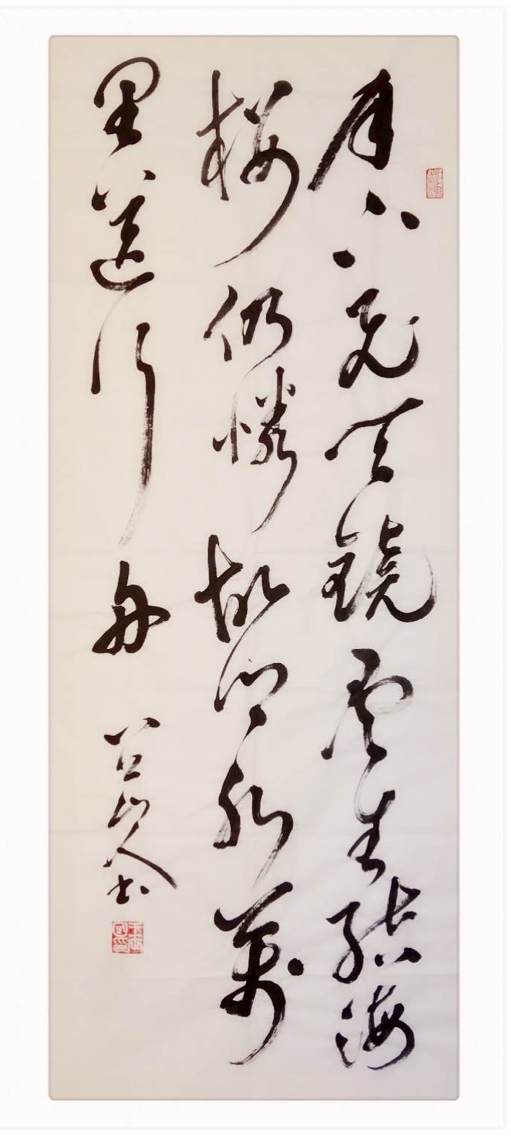 月下飛天鏡雲生結海
樓仍憐故鄉水萬
里送行舟
山人书